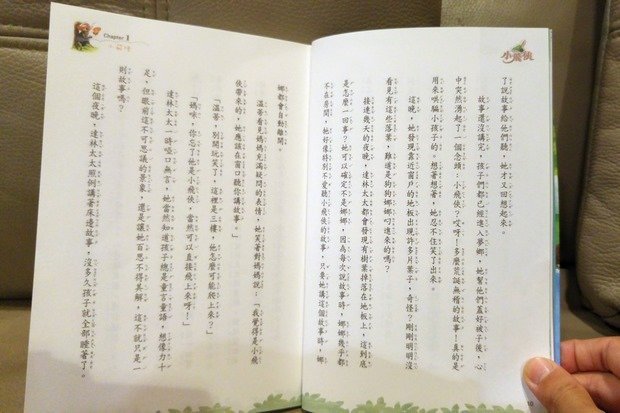 小飛俠
了說故事給他們聽，她才又回想起來。
故事還沒講完，孩子們都已經進入夢鄉，她幫他們蓋好被子後，心
中突然湧起了一個念頭：小飛俠？哎呀！多麼荒誕無稽的故事！真的是
用來哄騙小孩子的，想著想著，她忍不住笑了出來。
這晚，她發現靠近窗戶的地板出現許多片葉子，奇怪？剛剛明明沒
看見有這些落葉，難道是狗狗娜娜叼進來的嗎？
接連幾天的夜晚，達林太太都會發現有樹葉掉落在地板上，這到底
是怎麼一回事？她可以確定不是娜娜，因為每次說故事時，娜娜幾乎都
不在房間，她好像特別不愛聽小飛俠的故事，只要她講這個故事時，娜
Chapter 1
娜都會自動離開。
溫蒂看見媽媽充滿疑問的表情，她笑著對媽媽說：「我覺得是小飛
俠帶來的，他應該在窗口聽你講故事。」
「溫蒂，別開玩笑了，這裡是三樓，他怎麼可能爬上來？」
「媽咪，你忘了他是小飛俠，當然可以直接飛上來呀！」
達林太太一時啞口無言，她當然知道孩子總是童言童語，想像力十
足，但眼前這不可思議的景象，還是讓她百思不得其解，這不就只是一
則故事嗎？
這個夜晚，達林太太照例講著床邊故事，沒多久孩子就全部睡著了。